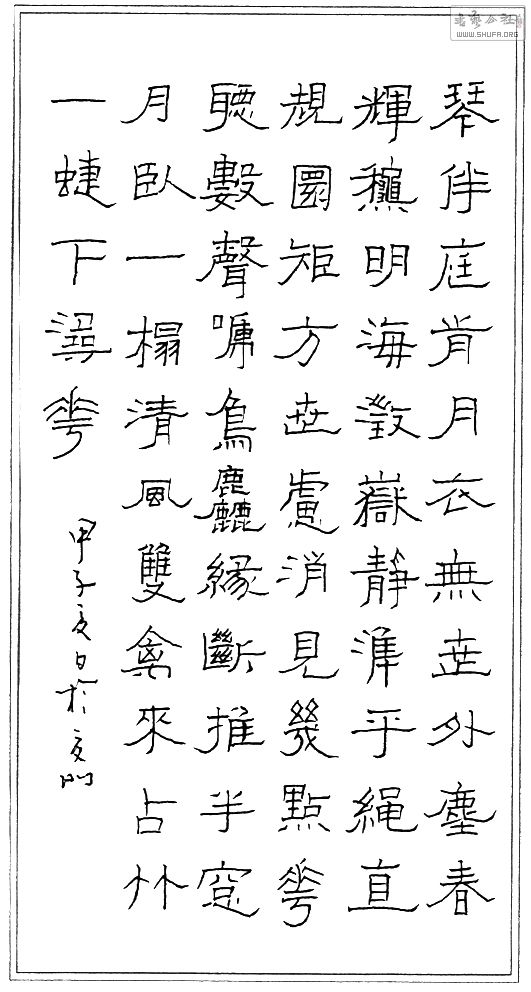 琴伴庭前月衣無世外塵春
輝龝明海澄嶽靜準平繩直
規圓矩方世慮消見幾點花
聽數聲啼鳥塵緣斷推半窗
月臥一榻清風雙禽來占竹
一蜨下尋花
甲子夏日於夏門
书艺公社
WWW.SHUFA.ORG